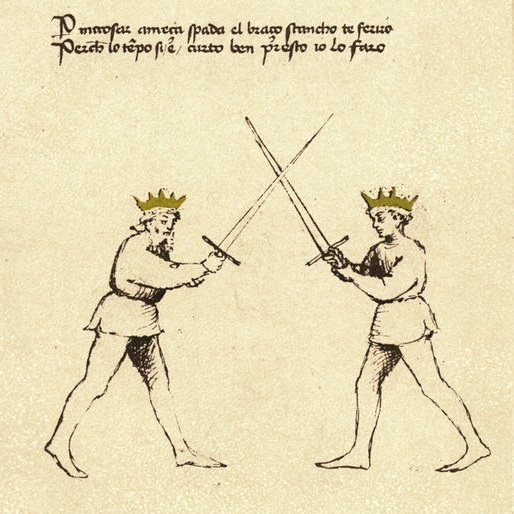 P incrosar ameça spada el braço stancho te feriro
Perch lo tẽpo si/ẽ/ curto ben p̃resto io lo faro